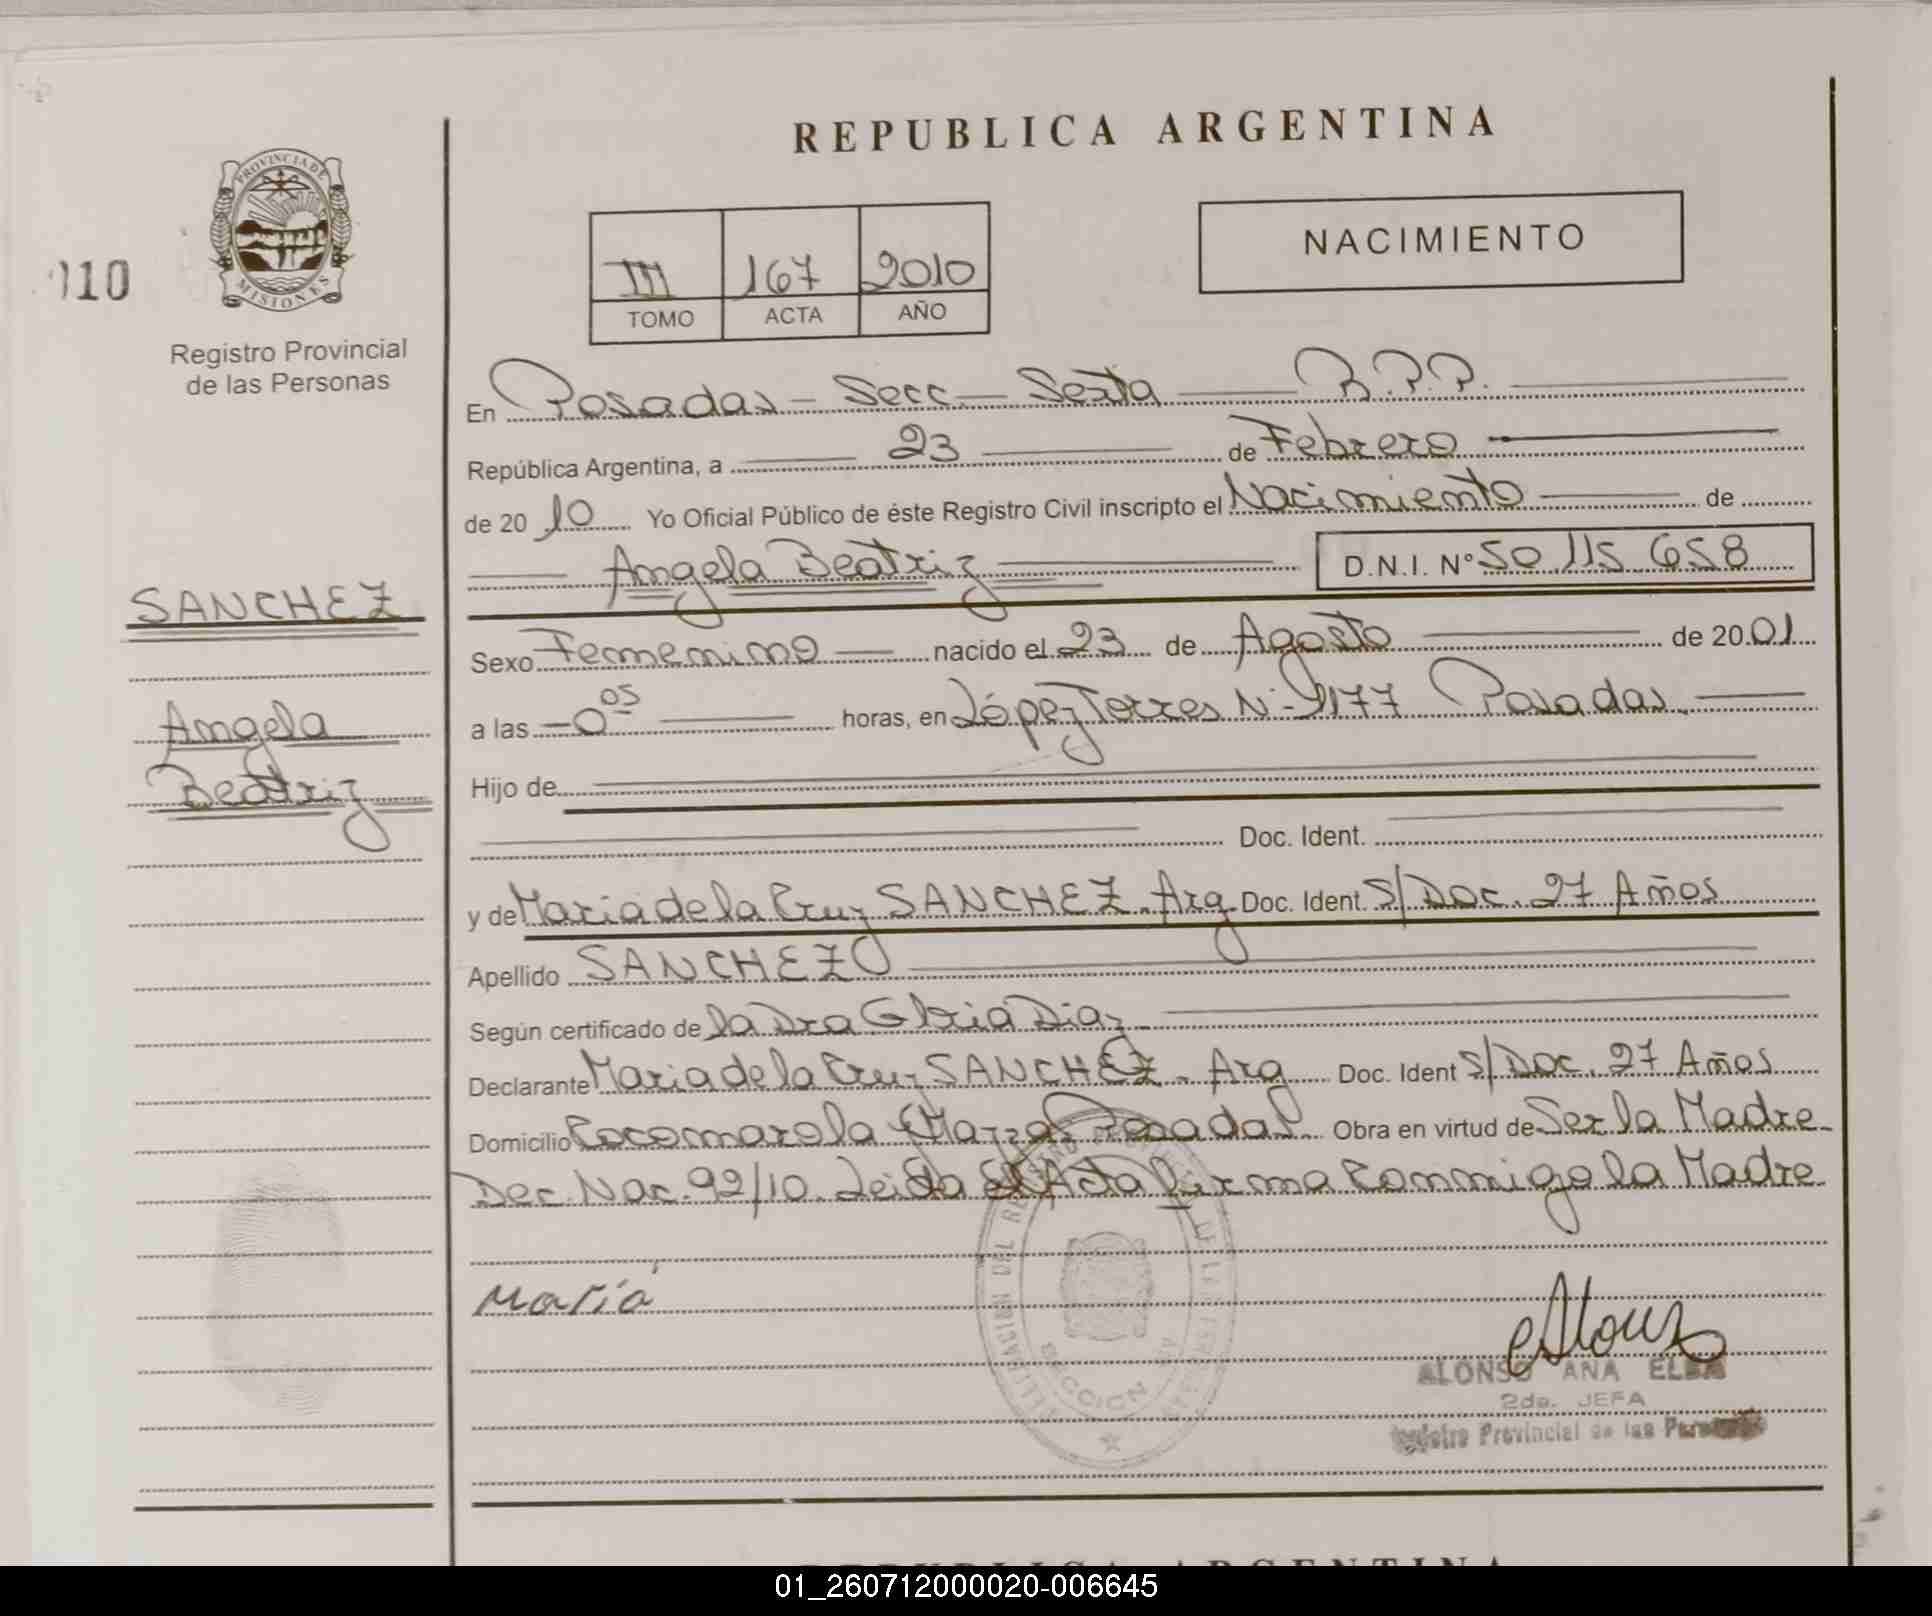 REPUBLICA ARGENTINA
PROVINCIA DE
MISIONES
110
Registro Provincial
de las Personas
NACIMIENTO
III 167 2010
TOMO ACTA AÑO
En Posadas - Secc. Sexta R.P.P.
República Argentina, a 23 de Febrero
de 2010 Yo Oficial Público de éste Registro Civil inscripto el Nacimiento de
Angela Beatriz D.N.I. Nº 50.115.658
SANCHEZ
Angela
Beatriz
Sexo Femenino nacido el 23 de Agosto de 20.01
a las 0 05 horas, en López Torres Nº 9177 Posadas.
Hijo de
Doc. Ident.
y de Maria de la Cruz SANCHEZ. Arg. Doc. Ident. S/Doc. 27 Años
Apellido SANCHEZ
Según certificado de la Dra Gloria Diaz
Declarante Maria de la Cruz SANCHEZ. Arg Doc. Ident S/Doc. 27 Años
Domicilio Cocomarola Posadas Obra en virtud de Ser la Madre
Dec. Nac. 92/10. Leida el Acta firma conmigo la Madre
María
SECCION
ALONSO ANA ELBA
2da. JEFA
Registro Provincial de las Personas
REPUBLICA ARGENTINA
01_260712000020-006645